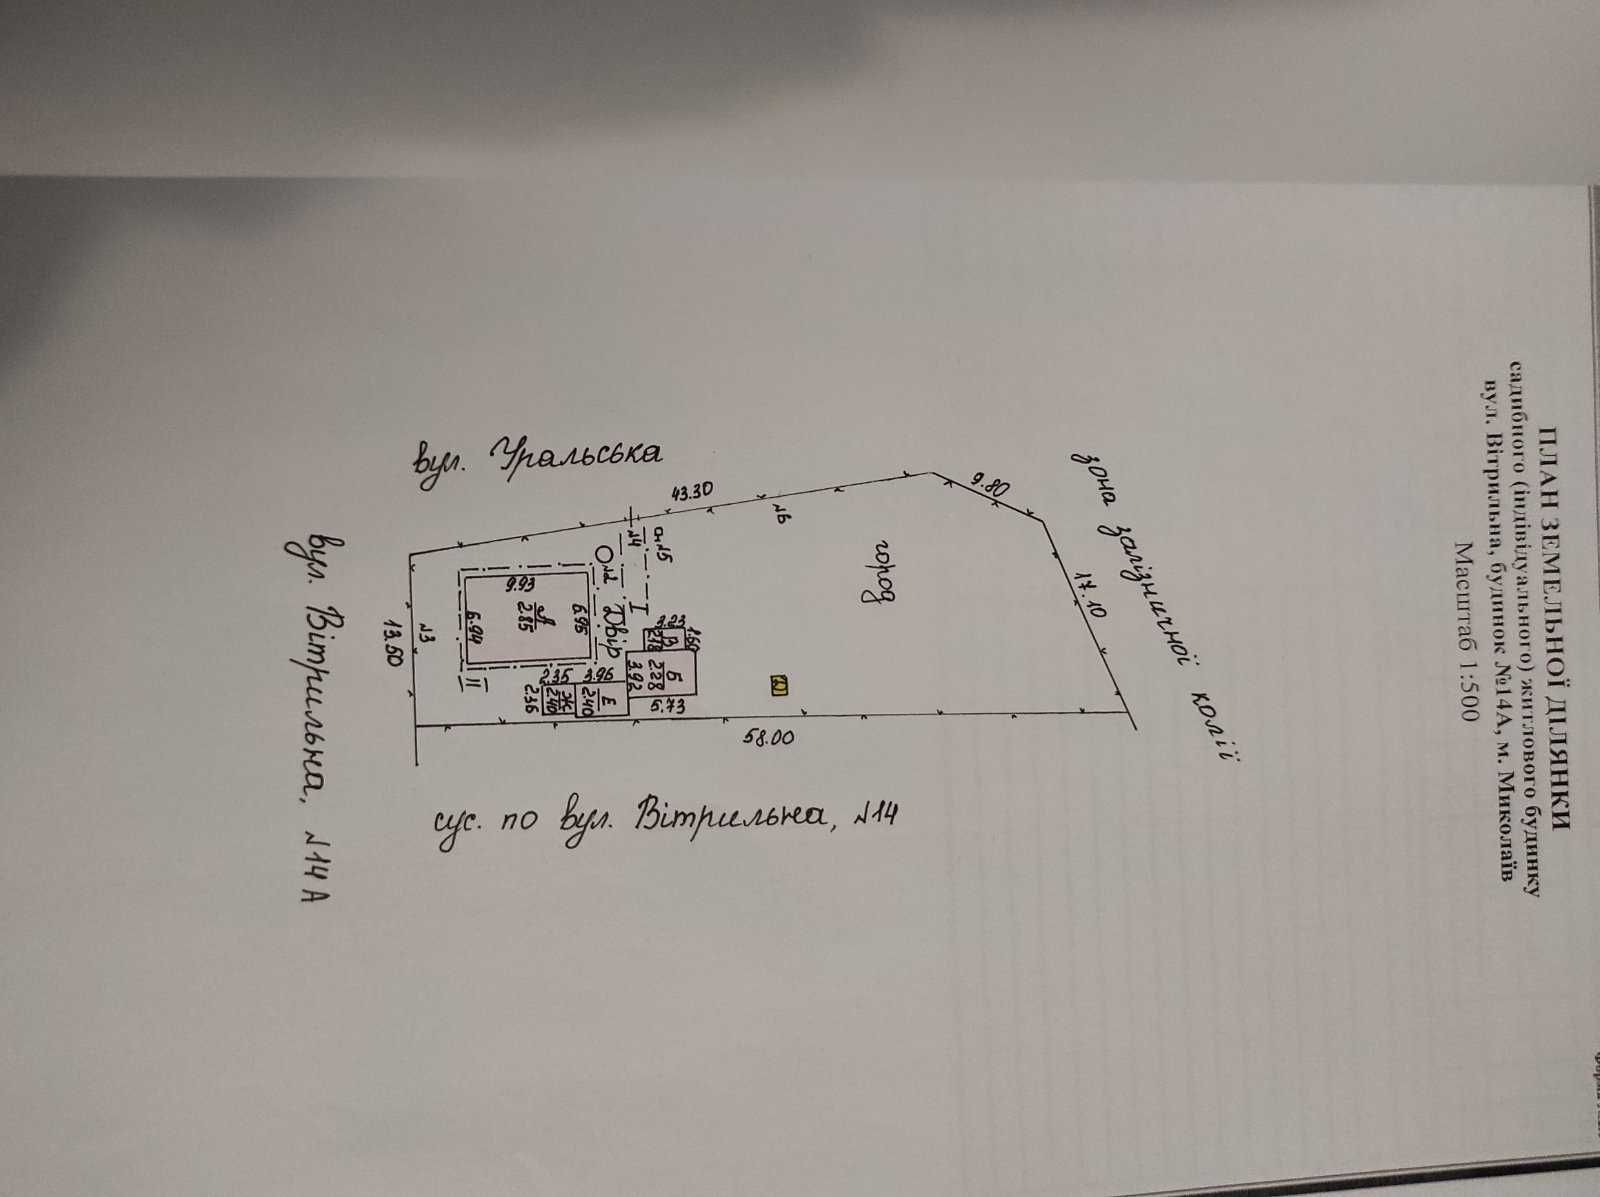 ПЛАН ЗЕМЕЛЬНОЇ ДІЛЯНКИ
садибного (індівідуального) житлового будинку
вул. Вітрильна, будинок №14А, м. Миколаїв
Масштаб 1:500
зона залізничної колії
17.10
9.80
город
№6
43.30
вул. Уральська
58.00
сус. по вул. Вітрильна, №14
№5
№4
І
№2
Двір
3.23
1.60
В
2.18
Б
2.28
3.92
5.73
Е
2.40
3.96
Ж
2.40
2.35
2.36
А
2.85
9.93
6.95
6.94
ІІ
№3
13.50
вул. Вітрильна, №14 А